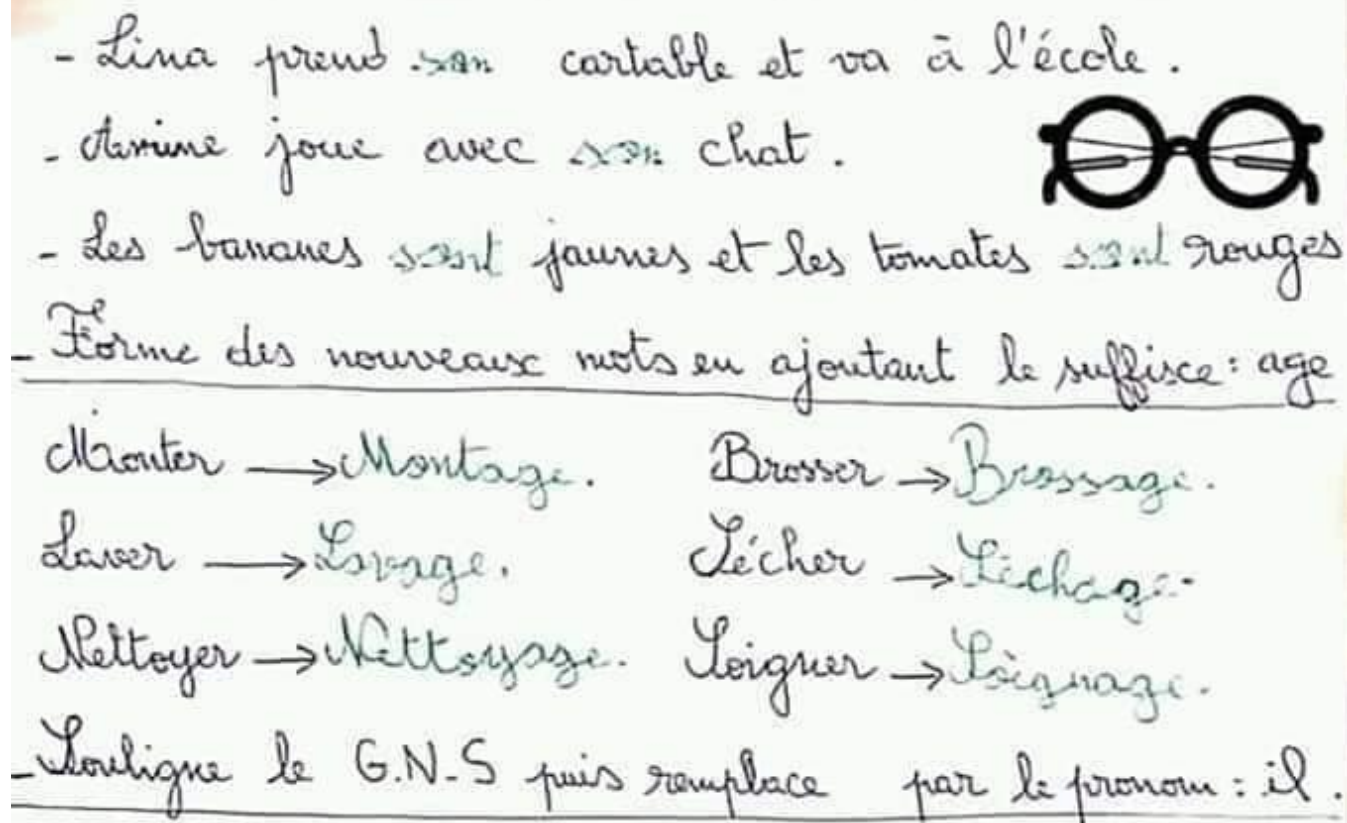 - Lina prend son cartable et va à l'école.
- Amine joue avec son chat.
- Les bananes sont jaunes et les tomates sont rouges
- Forme des nouveaux mots en ajoutant le suffixe : age
Monter → Montage. Brosser → Brossage.
Laver → Lavage. Sécher → Séchage.
Nettoyer → Nettoyage. Soigner → Soignage.
- Souligne le G.N.S puis remplace par le pronom : il.